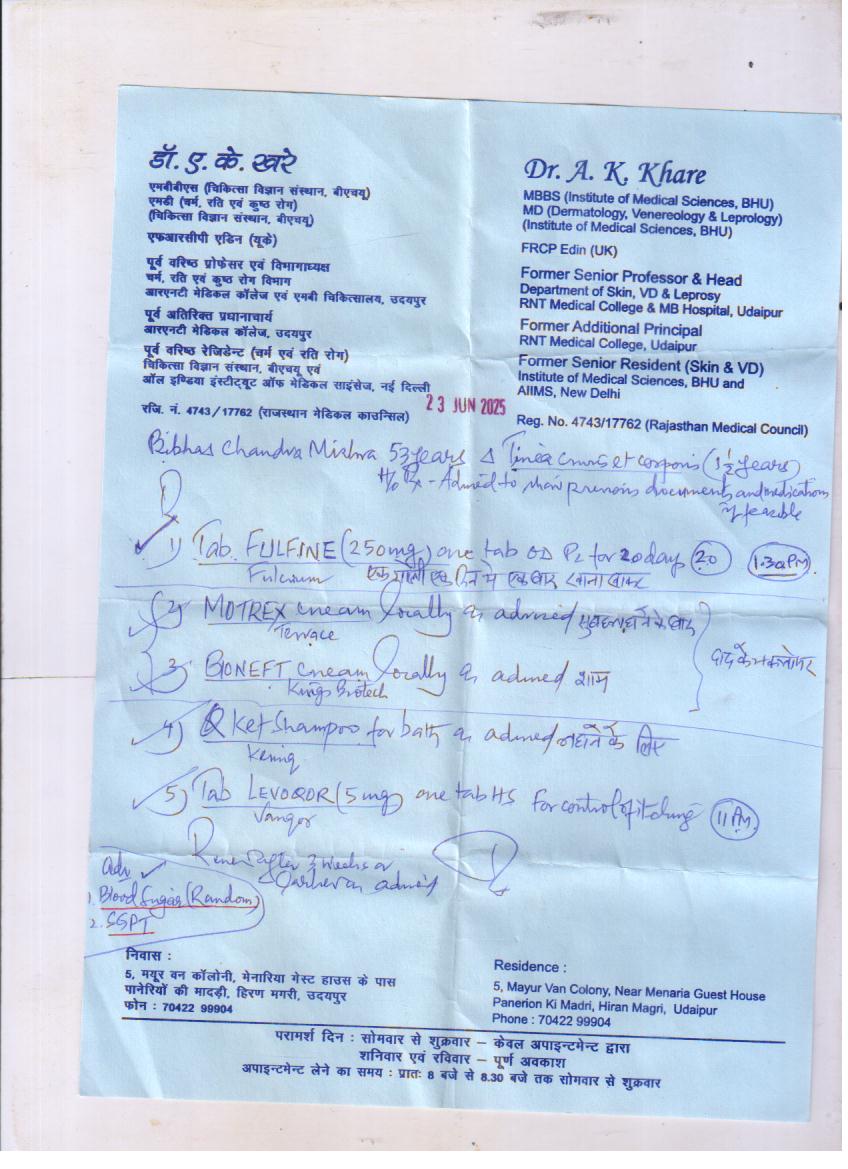 डॉ. ए. के. खरे
एमबीबीएस (चिकित्सा विज्ञान संस्थान, बीएचयू)
एमडी (चर्म, रति एवं कुष्ठ रोग)
(चिकित्सा विज्ञान संस्थान, बीएचयू)
एफआरसीपी एडिन (यूके)
पूर्व वरिष्ठ प्रोफेसर एवं विभागाध्यक्ष
चर्म, रति एवं कुष्ठ रोग विभाग
आरएनटी मेडिकल कॉलेज एवं एमबी चिकित्सालय, उदयपुर
पूर्व अतिरिक्त प्रधानाचार्य
आरएनटी मेडिकल कॉलेज, उदयपुर
पूर्व वरिष्ठ रेजिडेन्ट (चर्म एवं रति रोग)
चिकित्सा विज्ञान संस्थान, बीएचयू एवं
ऑल इण्डिया इंस्टीट्यूट ऑफ मेडिकल साइंसेज, नई दिल्ली
रजि. नं. 4743/17762 (राजस्थान मेडिकल काउन्सिल)
Dr. A. K. Khare
MBBS (Institute of Medical Sciences, BHU)
MD (Dermatology, Venereology & Leprology)
(Institute of Medical Sciences, BHU)
FRCP Edin (UK)
Former Senior Professor & Head
Department of Skin, VD & Leprosy
RNT Medical College & MB Hospital, Udaipur
Former Additional Principal
RNT Medical College, Udaipur
Former Senior Resident (Skin & VD)
Institute of Medical Sciences, BHU and
AIIMS, New Delhi
Reg. No. 4743/17762 (Rajasthan Medical Council)
23 JUN 2025
Bibhas Chandra Mishra 53 years Δ Tinea cruris et corporis (1½ years)
H/o Rx - Advised to show previous documents and medications
if feasible
1) Tab. FULFINE (250mg) one tab OD PL for 20 days 20 1.30PM
Fulcium एक गोली एक दिन में एक बार खाना खाकर
2) MOTREX cream locally as advised सुबह नहाने के बाद
Terrace
दाद के चकत्तों पर
3) BIONEFT cream locally as advised शाम
Kings Biotech
4) Q Ket Shampoo for bath as advised नहाने के लिए
5) Tab LEVOQOR (5mg) one tab HS for control of itching 11 PM
Vanqor
Review after 3 weeks or
earlier as advised
Adv
1. Blood Sugar (Random)
2. SGPT
निवास :
5, मयूर वन कॉलोनी, मेनारिया गेस्ट हाउस के पास
पानेरियों की मादड़ी, हिरण मगरी, उदयपुर
फोन : 70422 99904
Residence :
5, Mayur Van Colony, Near Menaria Guest House
Panerion Ki Madri, Hiran Magri, Udaipur
Phone : 70422 99904
परामर्श दिन : सोमवार से शुक्रवार – केवल अपाइन्टमेन्ट द्वारा
शनिवार एवं रविवार – पूर्ण अवकाश
अपाइन्टमेन्ट लेने का समय : प्रातः 8 बजे से 8.30 बजे तक सोमवार से शुक्रवार